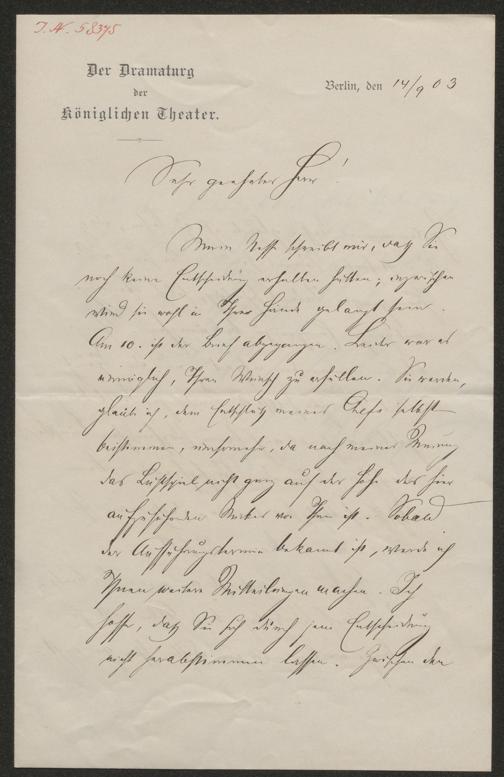 J. N. 58375
Der Dramaturg
der
Königlichen Theater.
Berlin, den 14/9 03
Sehr geehrter Herr!
Mein Neffe schreibt mir, daß Sie
noch keine Entscheidung erhalten hätten; inzwischen
wird sie wohl in Ihre Hände gelangt sein.
Am 10. ist der Brief abgegangen. Leider war es
unmöglich, Ihren Wunsch zu erfüllen. Sie werden,
glaube ich, dem Entschluß meines Chefs selbst
beistimmen, umsomehr, da nach meiner Meinung
das Lustspiel nicht ganz auf der Höhe des hier
aufzuführenden Werkes von Ihnen ist. Sobald
der Aufführungstermin bekannt ist, werde ich
Ihnen weitere Mitteilungen machen. Ich
hoffe, daß Sie sich durch jene Entscheidung
nicht herabstimmen lassen. Zwischen den